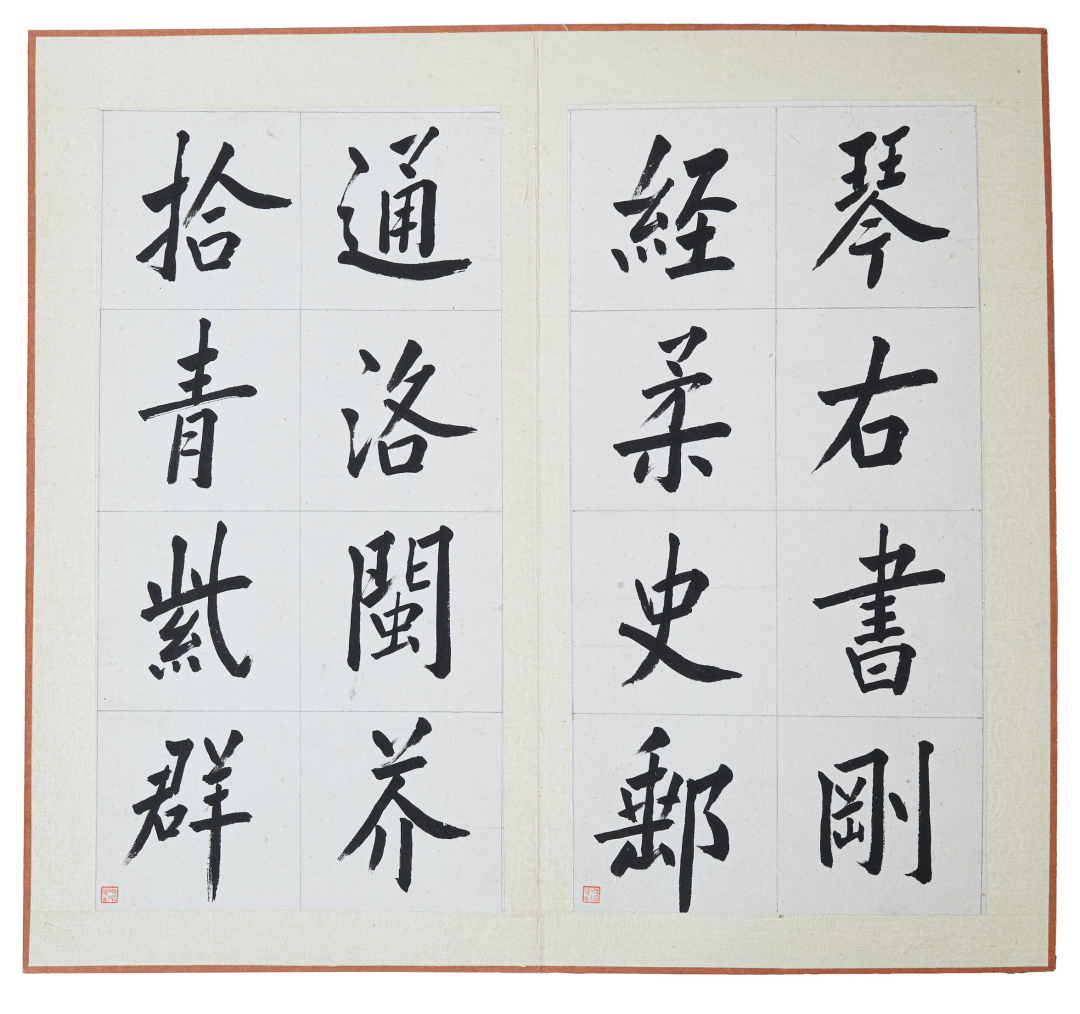 琴右書剛
経柔史郵
通洛閩芥
拾青紫群